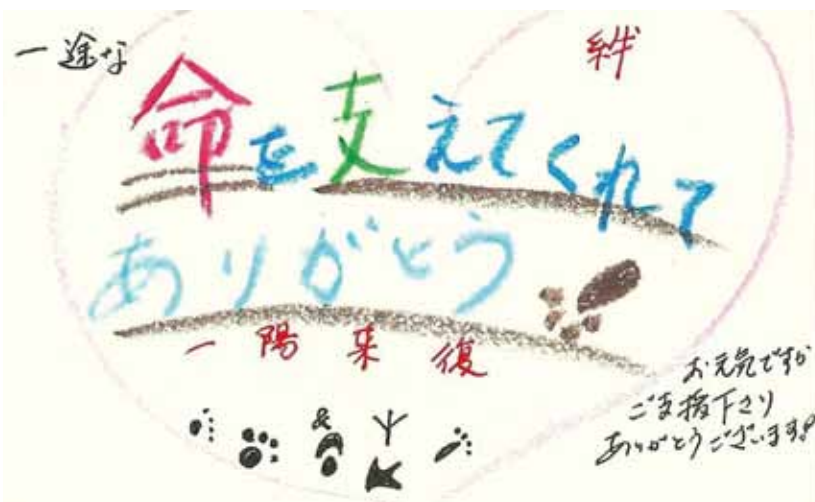 一途な
絆
命を支えてくれて
ありがとう
一陽来復
&
お元気ですか
ご支援下さり
ありがとうございます!